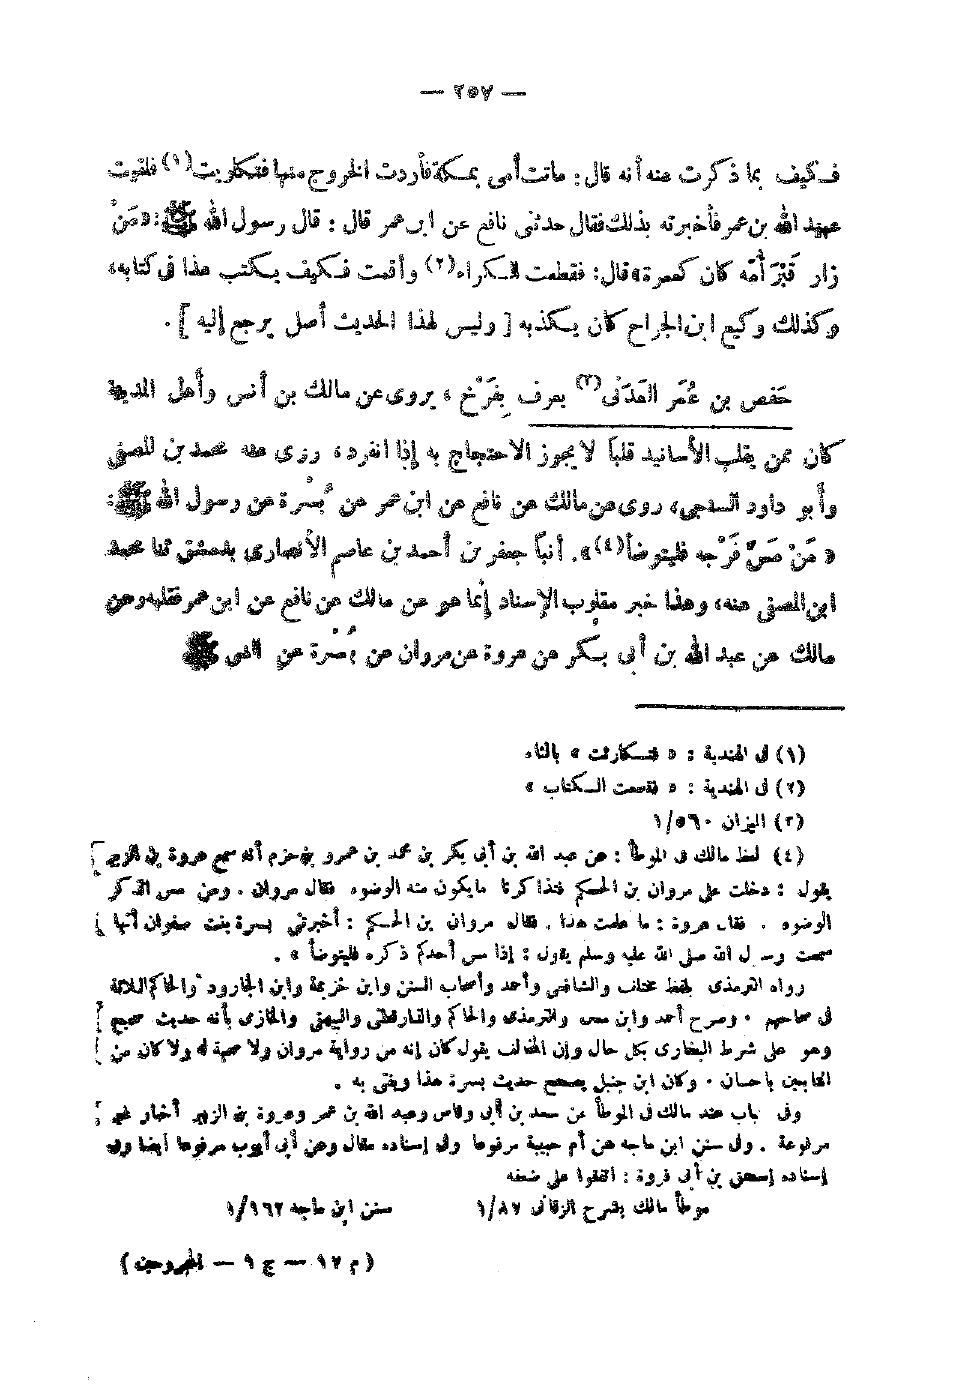 — ٢٥٧ —
فكيف بما ذكرت عنه أنه قال: ماتت أمى بمكة فأردت الخروج منها فتكاريت(١) فلقيت
عبيد الله بن عمر فأخبرته بذلك فقال حدثنى نافع عن ابن عمر قال : قال رسول الله ﷺ: « مَنْ
زار قَبْرَ أُمّه كان كعمرة » قال: فقطعت الكراء(٢) وأقمت فكيف يكتب هذا فى كتابه،
وكذلك وكيع ابن الجراح كان يكذبه [ وليس لهذا الحديث أصل يرجع إليه ] .
حَفص بن عُمَر العَدَنى(٣) يعرف بِفَرْخ ، يروى عن مالك بن أنس وأهل المدينة
كان ممن يقلب الأسانيد قلبًا لا يجوز الاحتجاج به إذا انفرد، روى عنه محمد بن المصفى
وأبو داود السنجى، روى عن مالك عن نافع عن ابن عمر عن بُسْرة عن رسول الله ﷺ :
« مَنْ مَسَّ فَرْجه فليتوضأ(٤) ». أنبأ جعفر بن أحمد بن عاصم الأنصارى بدمشق ثنا محمد
ابن المصفى عنه، وهذا خبر مقلوب الإسناد إنما هو عن مالك عن نافع عن ابن عمر فقلبه وعن
مالك عن عبد الله بن أبى بكر عن عروة عن مروان عن بُسْرة عن النبى ﷺ
(١) فى الهندية : « فتكارئت » بالثاء
(٢) فى الهندية : « فقصمت الكتاب »
(٣) الميزان ١/٥٦٠
(٤) لفظ مالك فى الموطأ : عن عبد الله بن أبى بكر بن محمد بن عمرو بن حزم أنه سمع عروة بن الزبير
يقول : دخلت على مروان بن الحكم فتذاكرنا ما يكون منه الوضوء فقال مروان . ومن مس الذكر
الوضوء . فقال عروة : ما علمت هذا . فقال مروان بن الحكم : أخبرتنى بسرة بنت صفوان أنها
سمعت رسول الله صلى الله عليه وسلم يقول : إذا مس أحدكم ذكره فليتوضأ » .
رواه الترمذى بلفظ مختلف والشافعى وأحمد وأصحاب السنن وابن خزيمة وابن الجارود والحاكم الثلاثة
فى صحاحهم . وصرح أحمد وابن معين والترمذى والحاكم والدارقطنى والبيهقى والحازمى بأنه حديث صحيح
وهو على شرط البخارى بكل حال وإن المخالف يقول كان إنه من رواية مروان ولا صحبة له ولا كان من
التابعين بإحسان . وكان ابن حنبل يصحح حديث بسرة هذا ويفتى به .
وفى الباب عند مالك فى الموطأ عن سعد بن أبى وقاص وعبد الله بن عمر وعروة بن الزبير أخبار غير
مرفوعة . وفى سنن ابن ماجه عن أم حبيبة مرفوعا وفى إسناده مقال وعن أبى أيوب مرفوعا أيضا وفى
إسناده إسحق بن أبى فروة : اتفقوا على ضعفه
موطأ مالك بشرح الزرقانى ١/٨٧ سنن ابن ماجه ١/١٦٢
( م ١٧ — ج ١ — المجروحين )